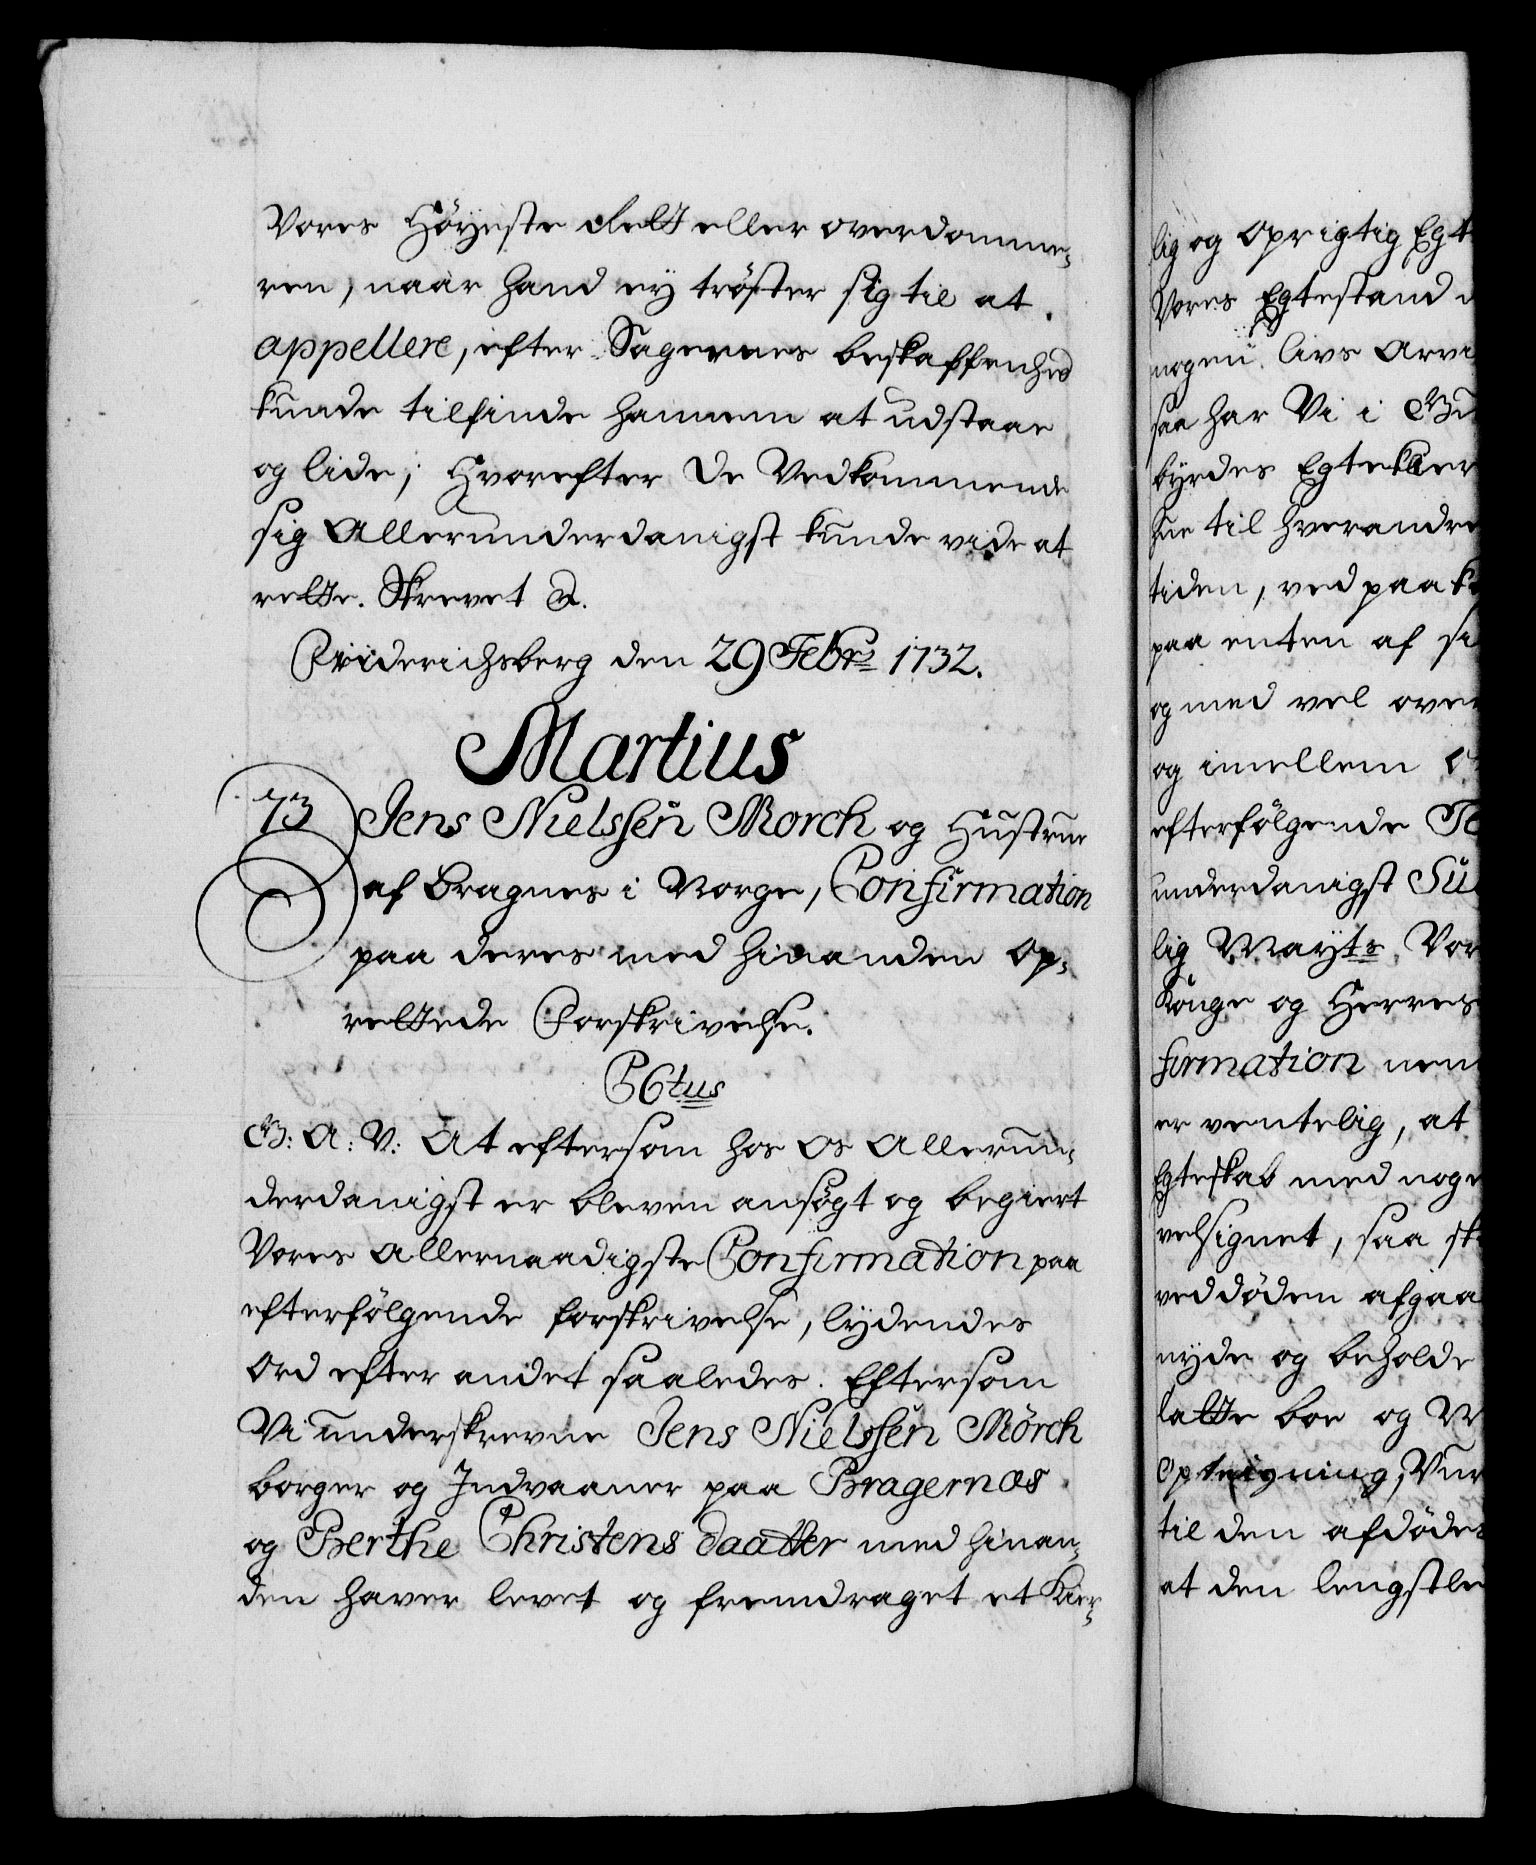 Vores Höyeste Rett eller overdomme-
ren, naar hand ey tröster sig til at
appellere, efter Sagernes beskaffenhed
kunde tilfinde hannem at udstaae
og lide; Hvorefter De Vedkommende
sig Allerunderdanigst kunde vide at
rette. Skrevet &.
Friderichsberg den 29 Febr: 1732.
Martius
73
Jens Nielssen Morch og Hustrue
af Bragnes i Norge, Confirmation
paa deres med hinanden op-
rettede Forskrivelse.
C6tus
G: A: V: At eftersom hos Os Allerun-
derdanigst er bleven ansögt og begiert
Vores Allernaadigste Confirmation paa
efterfölgende forskrivelse, lydendes
Ord efter andet saaledes. Eftersom
Vi underskrevne Jens Nielssen Mörch
borger og Indvaaner paa Bragernæs
og Berthe Christens daatter med hinan-
den haver levet og fremdraget et Kier-
lig og oprigtig Egt
Vores Egtestand
nogen Livs Arvi
saa har Vi i
byrdes Egtekier
hue til hverandre
tiden, ved paak
paa enten af si
og med vel over
og imellem
efterfölgende
underdanigst Su
lig Mayts Vor
Konge og Herres
firmation nem
er ventelig, at
Egteskab med noge
velsignet, saa sk
ved döden afgaa
nyde og beholde
latte boe og
Opteigning, Vur
til den afdödes
at den lengstle